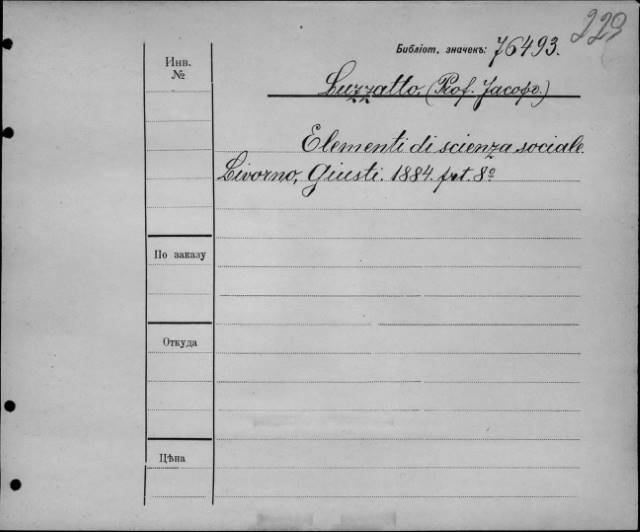 229
Библіот. значекъ: 76493.
Инв.
№
Luzzatto, (Prof. Jacopo.)
Elementi di scienza sociale
Livorno, Giusti. 1884. pet. 8º
По заказу
Откуда
Цѣна